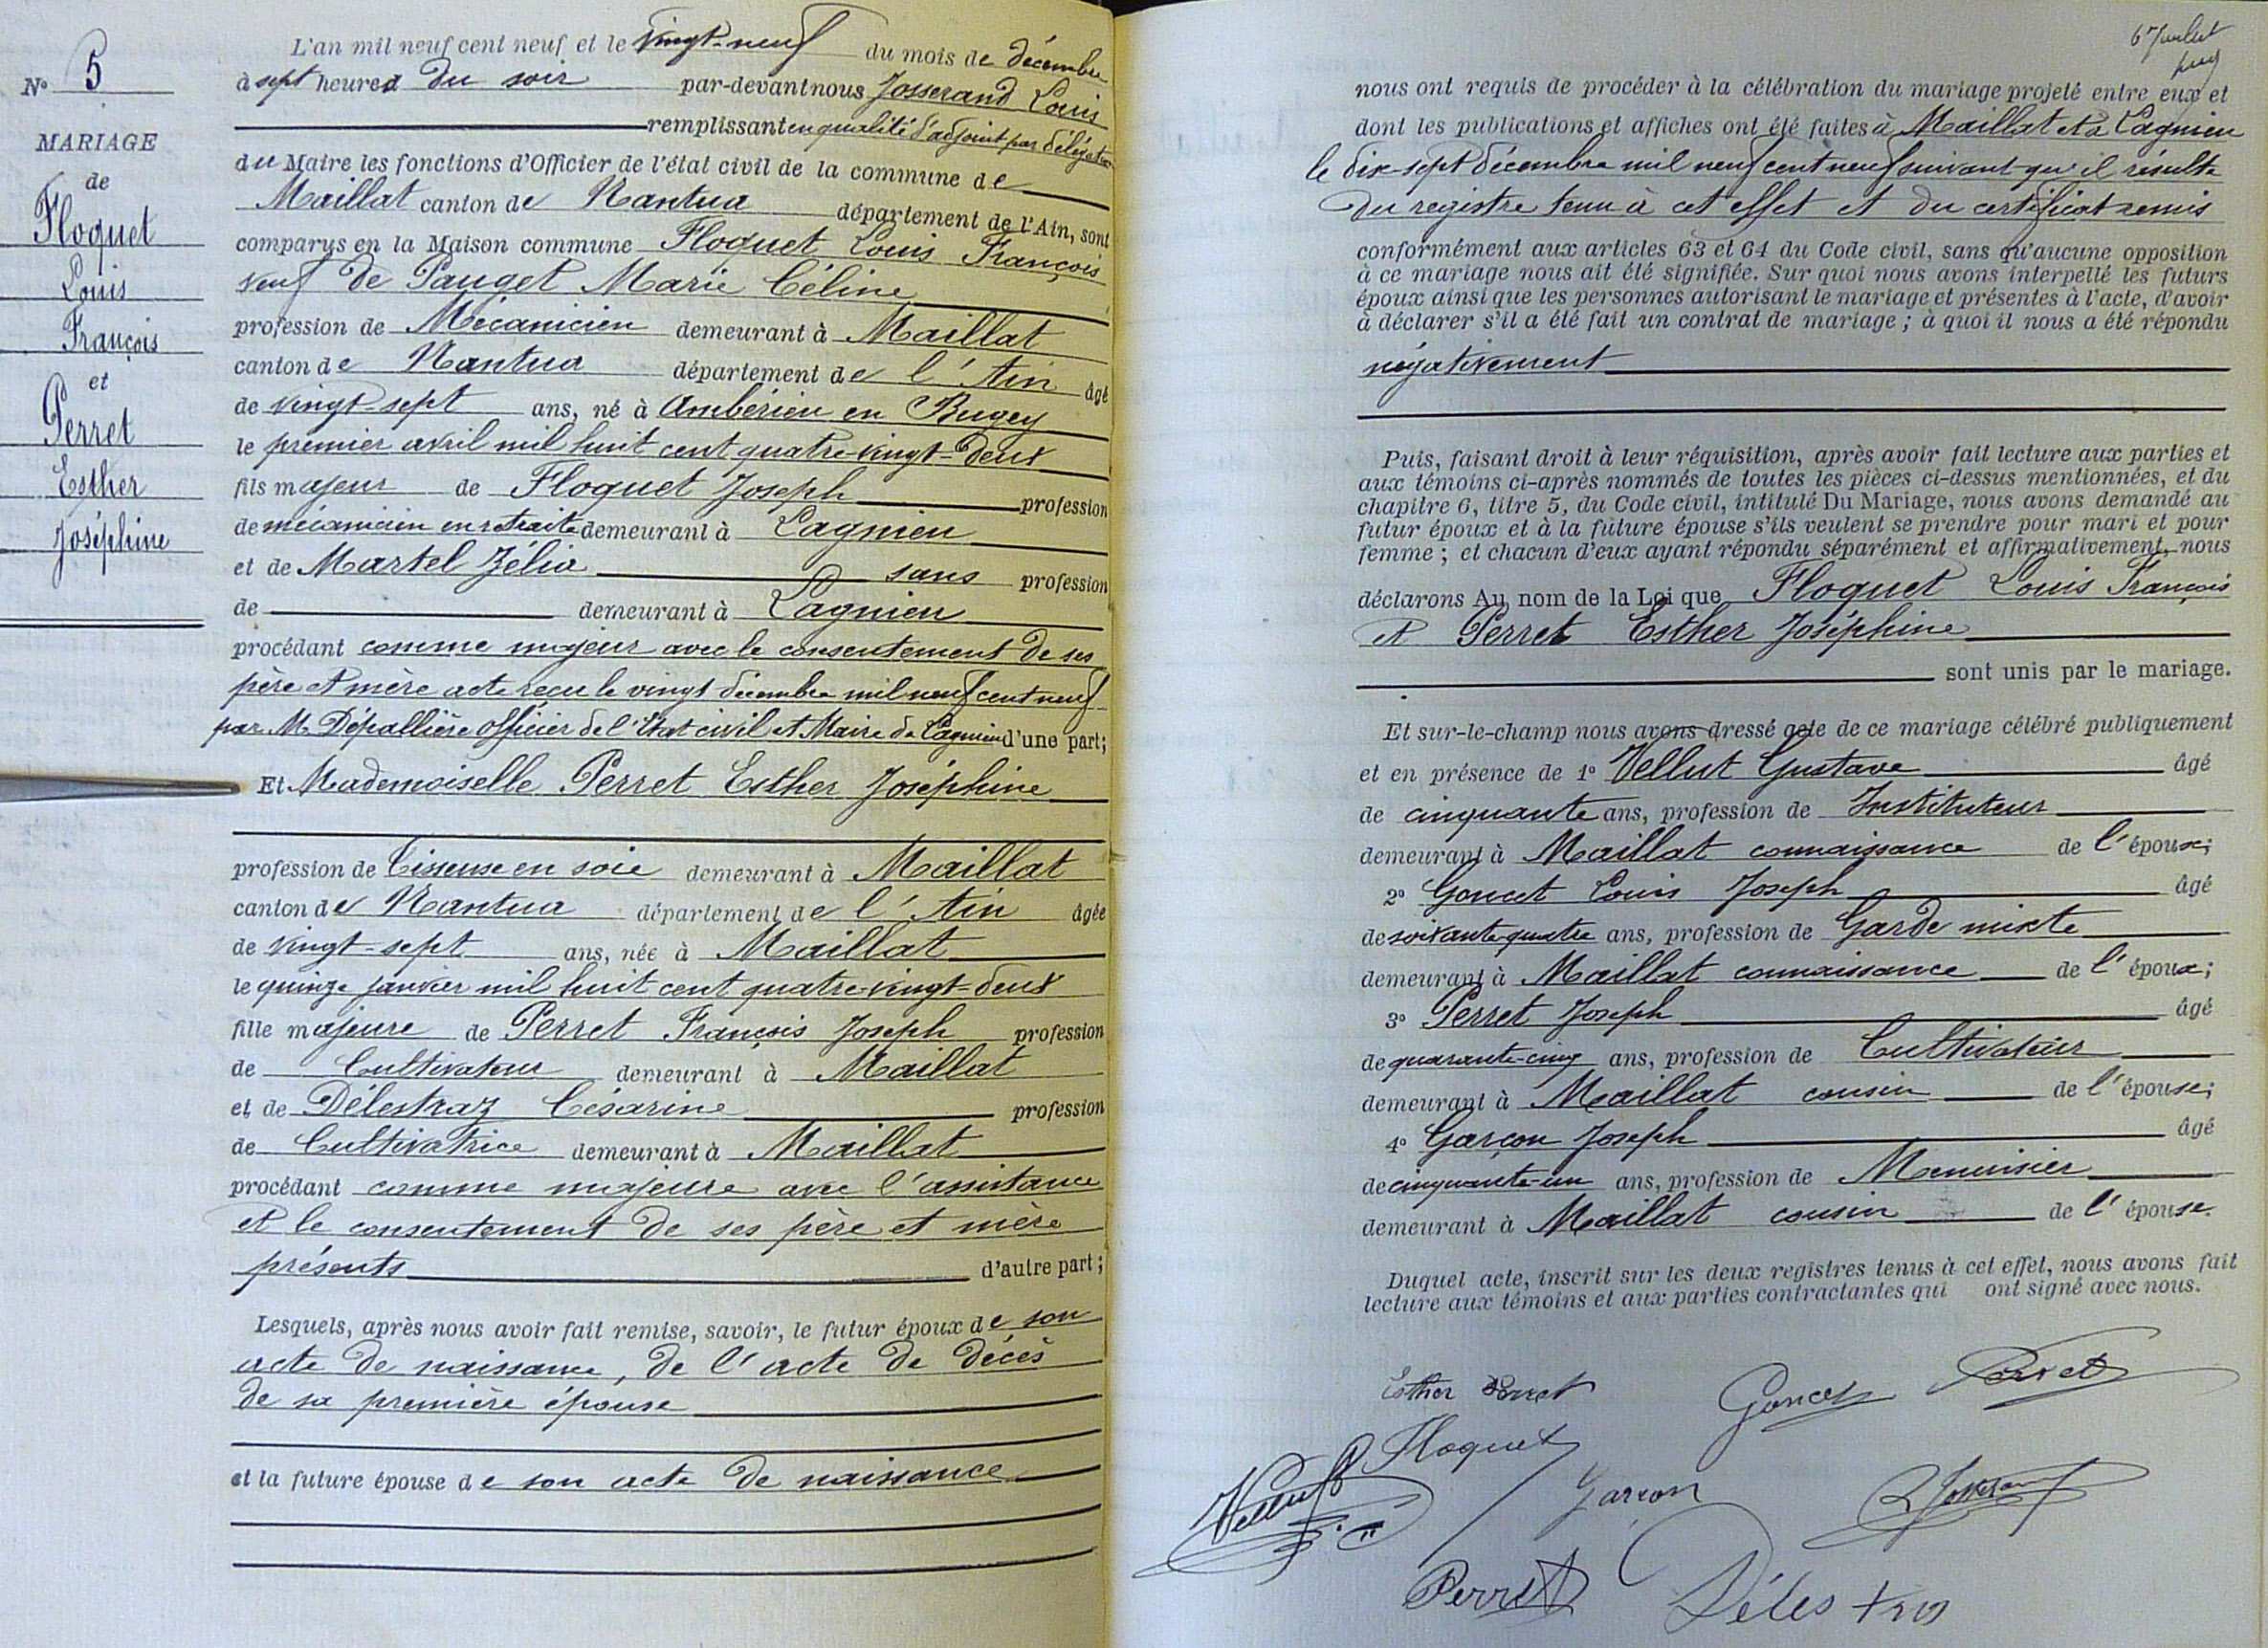 N° 5
MARIAGE
de
Floquet
Louis
François
et
Perret
Esther
Joséphine
L'an mil neuf cent neuf et le vingt-neuf du mois de décembre
à sept heures du soir par-devant nous Josserand Louis
remplissant en qualité d'adjoint par délégation
du Maire les fonctions d'Officier de l'état civil de la commune de
Maillat canton de Nantua département de l'Ain, sont
comparus en la Maison commune Floquet Louis François
veuf de Pauget Marie Céline
profession de Mécanicien demeurant à Maillat
canton de Nantua département de l'Ain âgé
de vingt-sept ans, né à Ambérieu en Bugey
le premier avril mil huit cent quatre-vingt-deux
fils majeur de Floquet Joseph profession
de mécanicien en retraite demeurant à Lagnieu
et de Martel Zélia sans profession
de demeurant à Lagnieu
procédant comme majeur avec le consentement de ses
père et mère acte reçu le vingt décembre mil neuf cent neuf
par M. Dépallière officier de l'Etat civil et Maire de Lagnieu d'une part;
Et Mademoiselle Perret Esther Joséphine
profession de Tisseuse en soie demeurant à Maillat
canton de Nantua département de l'Ain âgée
de vingt-sept ans, née à Maillat
le quinze janvier mil huit cent quatre-vingt-deux
fille majeure de Perret François Joseph profession
de Cultivateur demeurant à Maillat
et de Délestraz Césarine profession
de Cultivatrice demeurant à Maillat
procédant comme majeure avec l'assistance
et le consentement de ses père et mère
présents d'autre part;
Lesquels, après nous avoir fait remise, savoir, le futur époux de son
acte de naissance, de l'acte de décès
de sa première épouse
et la future épouse de son acte de naissance
6e Juillet
nous ont requis de procéder à la célébration du mariage projeté entre eux et
dont les publications et affiches ont été faites à Maillat et à Lagnieu
le dix-sept décembre mil neuf cent neuf suivant qu'il résulte
du registre tenu à cet effet et du certificat remis
conformément aux articles 63 et 64 du Code civil, sans qu'aucune opposition
à ce mariage nous ait été signifiée. Sur quoi nous avons interpellé les futurs
époux ainsi que les personnes autorisant le mariage et présentes à l'acte, d'avoir
à déclarer s'il a été fait un contrat de mariage; à quoi il nous a été répondu
négativement
Puis, faisant droit à leur réquisition, après avoir fait lecture aux parties et
aux témoins ci-après nommés de toutes les pièces ci-dessus mentionnées, et du
chapitre 6, titre 5, du Code civil, intitulé Du Mariage, nous avons demandé au
futur époux et à la future épouse s'ils veulent se prendre pour mari et pour
femme; et chacun d'eux ayant répondu séparément et affirmativement, nous
déclarons Au nom de la Loi que Floquet Louis François
et Perret Esther Joséphine
sont unis par le mariage.
Et sur-le-champ nous avons dressé acte de ce mariage célébré publiquement
et en présence de 1° Vellut Gustave âgé
de cinquante ans, profession de Instituteur
demeurant à Maillat connaissance de l'épouse;
2° Goncet Louis Joseph âgé
de soixante-quatre ans, profession de Garde mixte
demeurant à Maillat connaissance de l'époux;
3° Perret Joseph âgé
de quarante-cinq ans, profession de Cultivateur
demeurant à Maillat cousin de l'épouse;
4° Garçon Joseph âgé
de cinquante-un ans, profession de Menuisier
demeurant à Maillat cousin de l'épouse.
Duquel acte, inscrit sur les deux registres tenus à cet effet, nous avons fait
lecture aux témoins et aux parties contractantes qui ont signé avec nous.
Esther Perret Goncet Perret
Floquet
Vellut Garcon L Josserand
Perret Délestraz